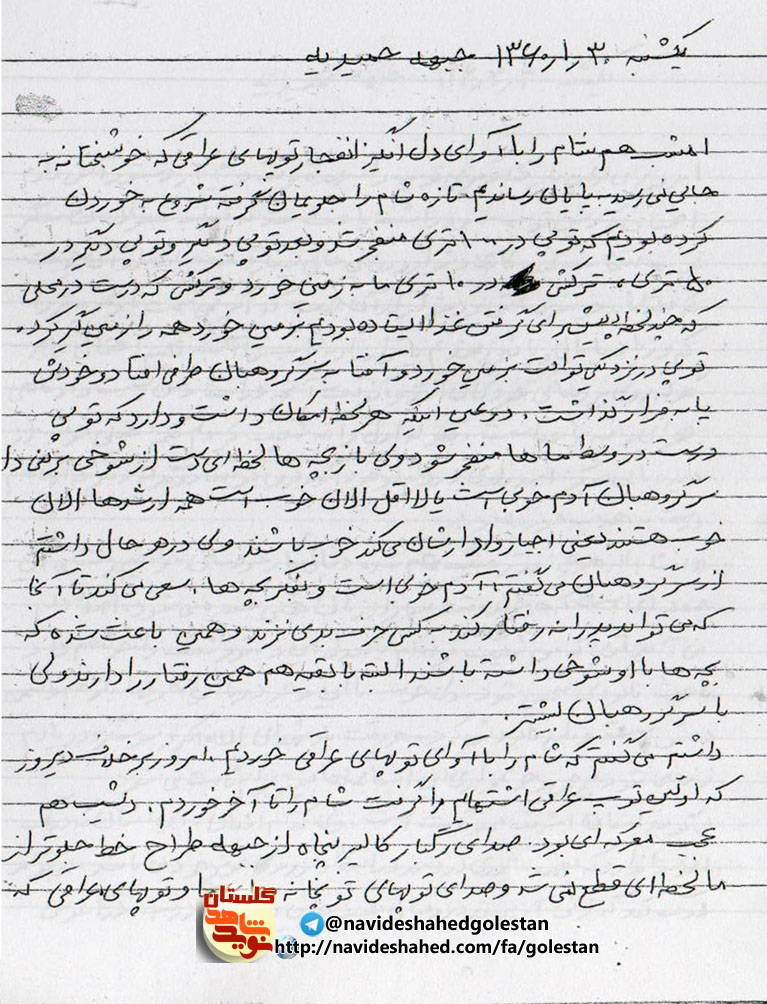 یکشنبه ۱۳۶۰/۱/۳۰ جبهه حمیدیه
امشب هم شام را با آوای دل انگیز انفجار توپهای عراقی که خوشبختانه به
جایی نمی رسید بپایان رساندیم. تازه شام را جلویمان گرفته شروع به خوردن
کرده بودیم که توپی در ۱۰۰ متری منفجر شد و بعد توپی دیگر و توپی دیگر در
۵۰ متری، ترکشی در ۱۰ متری ما به زمین خورد و ترکشی که درست در محلی
که چند لحظه پیش برای گرفتن غذا ایستاده بودیم بزمین خورد همه را زمین گیر کرد.
توپی در نزدیکی توالت بزمین خورد و آفتابه سرگروهبان طرفی افتاد و خودش
پا به فرار گذاشت. در عین اینکه هر لحظه امکان داشت و دارد که توپی
درست در وسط ماها منفجر شود ولی باز بچه ها لحظه ای دست از شوخی برنمی دا
سرگروهبان آدم خوبی است یا لااقل الان خوب است همه ارشدها الان
خوب هستند یعنی اجبار وادارشان می کند خوب باشند. ولی در هر حال داشتم
از سرگروهبان می گفتم، آدم خوبی است و بفکر بچه ها، سعی می کند تا آنجا
که می تواند پدرانه رفتار کند به کسی حرف بدی نزند و همین باعث شده که
بچه ها با او شوخی داشته باشند البته با بقیه هم همین رفتار را دارند ولی
با سرگروهبان بیشتر.
داشتم می گفتم که شام را با آوای توپهای عراقی خوردیم. امروز برخلاف دیروز
که اولین توپ عراقی اشتهایم را گرفت شام را تا آخر خوردم. دیشب هم
عجب معرکه ای بود. صدای رگبار کالیبر پنجاه از جبهه طراح خط جلوتر از
ما لحظه ای قطع نمی شد و صدای توپهای توپخانه ما و توپهای عراقی که
گلستان
نوید شاهد
@navideshahedgolestan
http://navideshahed.com/fa/golestan